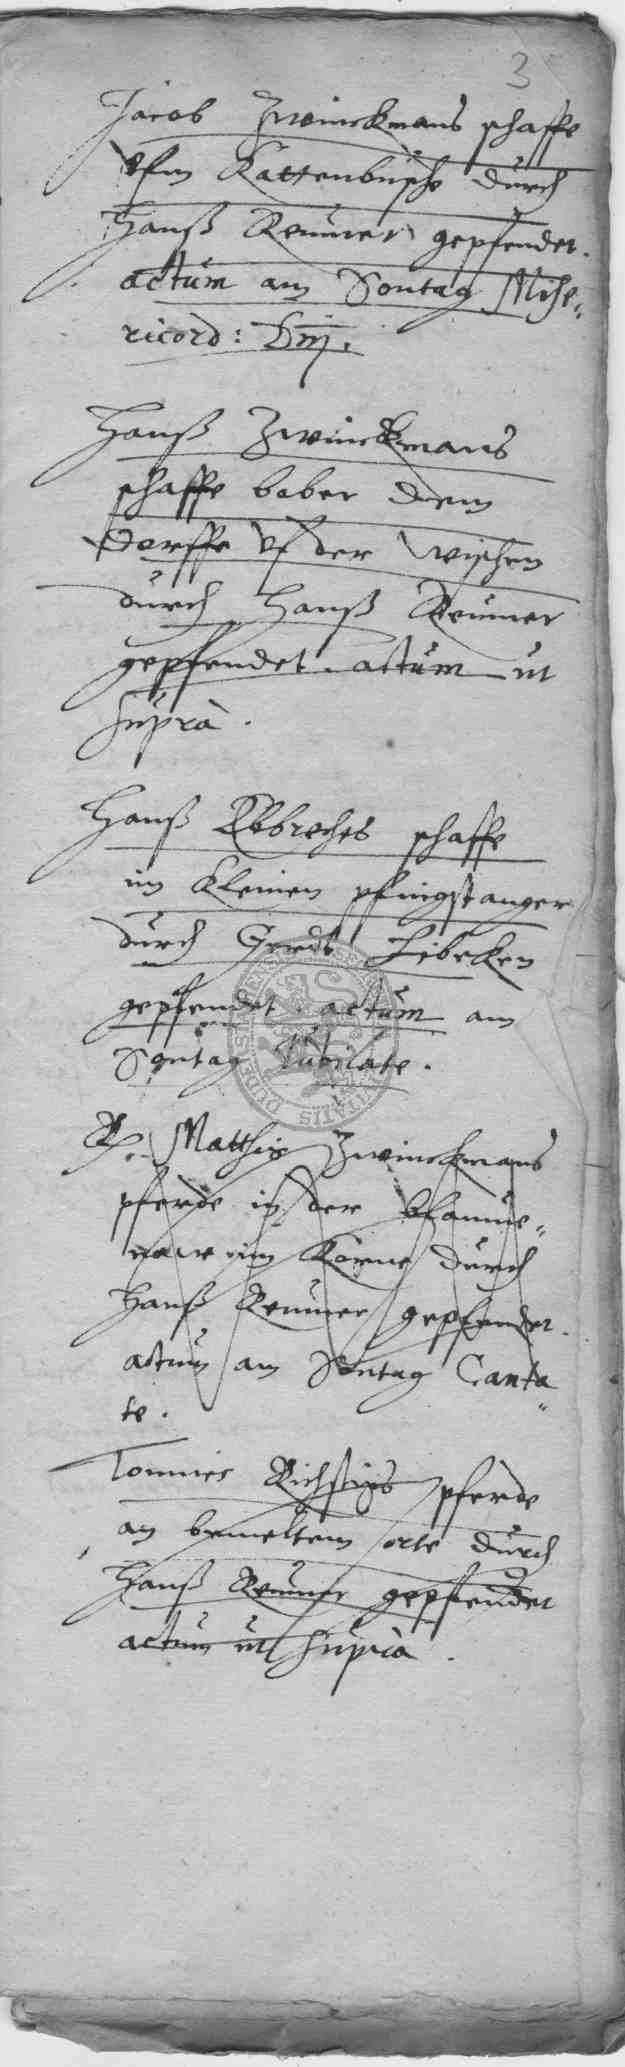 3
Jacob Zwinckmans schaffe
Vfm Kattenbusche durch
Hanß Reumer gepfendet.
actum am Sontag Mise=
ricord: Dnj.
Hanß Zwinckmans
schaffe bober dem
dorffe vf der wischen
durch Hanß Reumer
gepfendet. actum ut
supra.
Hanß schaffe
im Kleinen pfingstanger
durch Gerdt Libeken
gepfendet. actum am
Sontag Jubilate.
Matthis Zwinckmans
pferde in der
im Korne durch
Hanß Reumer gepfendet.
actum am Sontag Canta=
te.
Tonnies pferde
an bemeltem orte durch
Hanß Reumer gepfendet
actum ut supra.